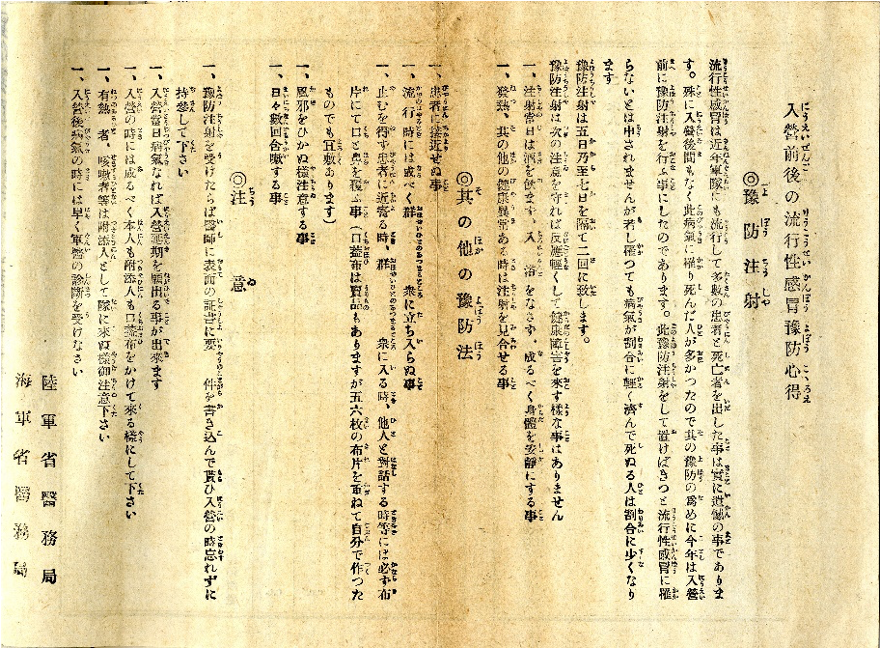 入營前後の流行性感冒豫防心得
◎豫防注射
流行性感冒は近年軍隊にも流行して多數の患者と死亡者を出した事は實に遺憾の事でありま
す。殊に入營後間もなく此病氣に罹り死んだ人が多かつたので其の豫防の爲めに今年は入營
前に豫防注射を行ふ事にしたのであります。此豫防注射をして置けばきつと流行性感冒に罹
らないとは申されませんが若し罹つても病氣が割合に輕く濟んで死ぬる人は割合に少くなり
ます
豫防注射は五日乃至七日を隔て二回に致します。
豫防注射は次の注意を守れば反應輕くして健康障害を來す樣な事はありません
一、注射當日は酒を飮まず、入浴をなさず、成るべく身體を安靜にする事
一、發熱、其の他の健康異常ある時は注射を見合せる事
◎其の他の豫防法
一、患者に接近せぬ事
一、流行時には成べく群衆に立ち入らぬ事
一、止むを得ず患者に近寄る時、群衆に入る時、他人と對話する時等には必ず布
片にて口と鼻を覆ふ事（口蓋布は賣品もありますが五六枚の布片を重ねて自分で作つた
ものでも宜敷あります）
一、風邪をひかぬ樣注意する事
一、日々數回含嗽する事
◎注意
一、豫防注射を受けたらば醫師に表面の証書に要件を書き込んで貰ひ入營の時忘れずに
持參して下さい
一、入營當日病氣なれば入營延期を願出る事が出來ます
一、入營の時には成るべく本人も附添人も口蓋布をかけて來る樣にして下さい
一、有熱者、咳嗽者等は附添人として入隊に來ぬ樣御注意下さい
一、入營後病氣の時には早く軍醫の診斷を受けなさい
陸軍省醫務局
海軍省醫務局